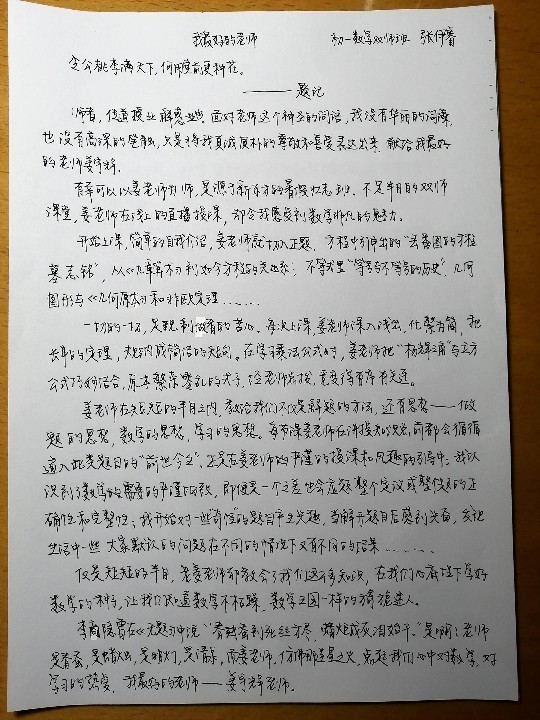 我最好的老师 初一数学双师班 张伊睿
令公桃李满天下,何用堂前更种花。
——题记
师者,传道授业解惑也。面对老师这个神圣的词语,我没有华丽的词藻,
也没有高深的笔触,只是将我真诚质朴的尊敬和喜爱表达出来,献给我最好
的老师姜宇
有幸可以以姜老师为师,是源于新东方的暑假 班。不足半月的双师
课堂,姜老师在线上的直播授课,却令我感受到数学非凡的魅力。
开始上课,简单的自我介绍,姜老师就切入正题。方程中引申出的“丢番图的方程
墓志铭”,从《九章算术》到如今方程的 ;不等式里“等号与不等号的历史”,几何
图形与《几何原本》和非欧定理……
一切的一切,是 的苦心。每次上课姜老师深入浅出,化繁为简,把
长串的定理,归纳成简洁的 。在学习乘法公式时,姜老师把“杨辉三角”与立方
公式巧妙结合,原本繁杂零乱的式子,经老师点拨,竟变得有序有关连。
姜老师在短短的半月之内,教给我们不仅是解题的方法,还有思想——做
题的思想,数学的思想,学习的思想。每节课姜老师在讲授知识之前都会循循
道入此类题目的“前世今生”,正是在姜老师的严谨的授课和风趣的引导中,我认
识到了数学的 的严谨 ,即便是一个之差也会应题整个定议或整个题的正
确性和完整性;我开始对一些奇怪的题目产生兴趣,当解开题目后感到兴奋,发现
生活中一些大家默认的问题在不同的情况下又有不同的结果……
仅是短短的半月,老姜老师却教会了我们这许多知识,在我们心底活下学好
数学的种子,让我们知道数学不枯躁,数学王国一样的绮丽迷人。
李商隐曾在《无题》中说“春蚕到死丝方尽,蜡炬成灰泪始干”。是啊!老师
是春蚕,是蜡烛,是明灯,是 ,而姜老师,仿佛那道星之火,点起我们心中对数学,对
学习的热爱。我最好的老师——姜宇 老师。